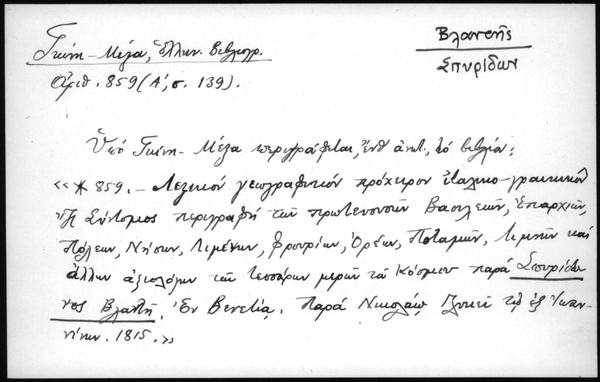 Γκίνη-Μέξα, Ἑλλην. Βιβλιογρ.
Ἀριθ. 859 (Α΄, σ. 139).
Βλαντῆς
Σπυρίδων
Ὑπό Γκίνη-Μέξα περιγράφεται, ἔνθ' ἀνωτ., τό βιβλίον:
«* 859. — Λεξικόν γεωγραφικόν πρόχειρον ἰταλικο-γραικικόν
ἤ Σύντομος περιγραφή τῶν πρωτευουσῶν Βασιλειῶν, Ἐπαρχιῶν,
Πόλεων, Νήσων, Λιμένων, Φρουρίων, Ὀρέων, Ποταμῶν, Λιμνῶν καί
ἄλλων ἀξιολόγων τῶν τεσσάρων μερῶν τοῦ Κόσμου παρά Σπυρίδω-
νος Βλαντῆ. Ἐν Βενετίᾳ. Παρά Νικολάῳ Γλυκεῖ τῷ ἐξ Ἰωαν-
νίνων. 1815.»